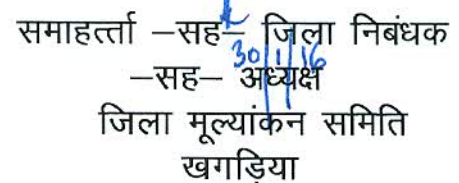 समाहर्त्ता –सह– जिला निबंधक
30/1/16
–सह– अध्यक्ष
जिला मूल्यांकन समिति
खगड़िया